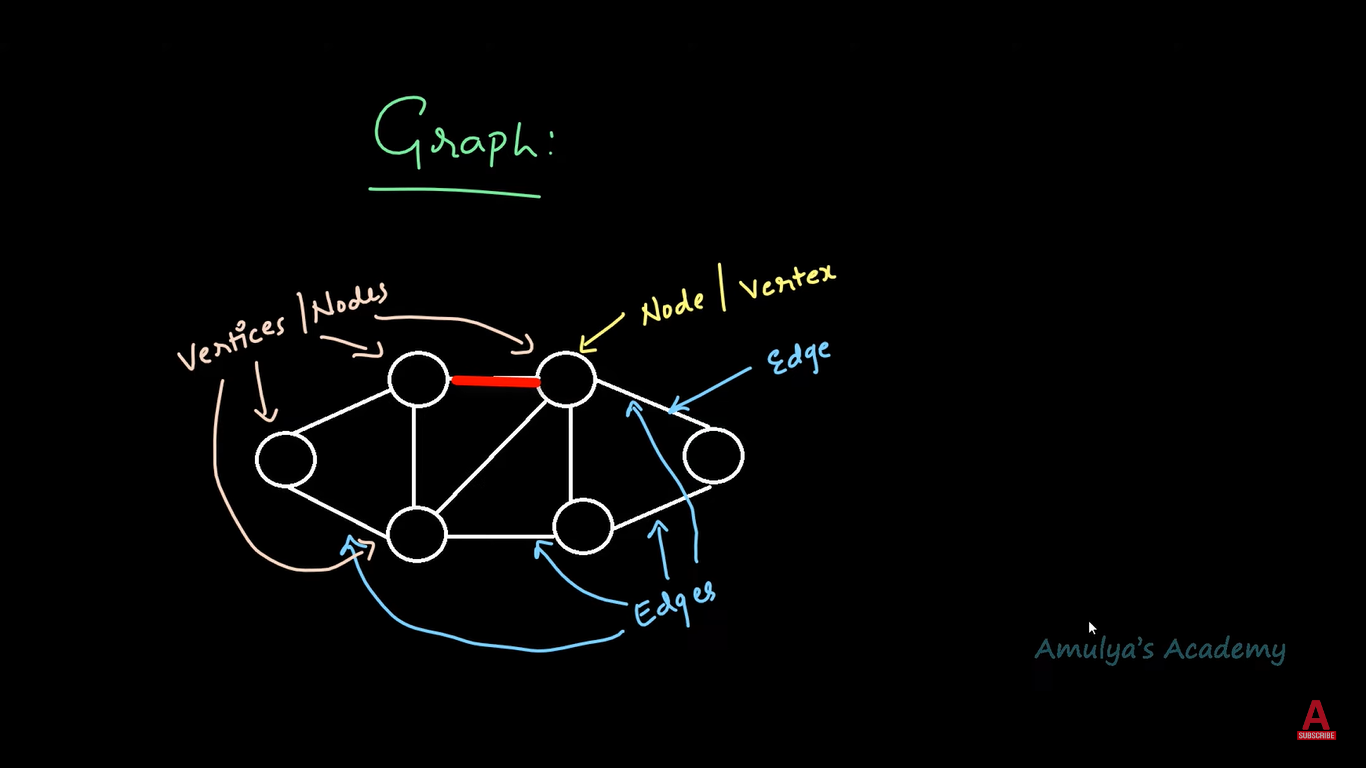 Graph:
Vertices | Nodes
Node | Vertex
Edge
Edges
Amulya's Academy
A
SUBSCRIBE